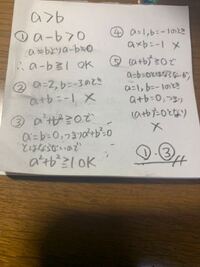 a>b
① a-b>0
a≠bよりa-b≠0
∴ a-b≧1 OK
② a=2, b=-3のとき
a+b=-1 ×
③ a²+b²≧0で
a=b=0,つまりa²+b²=0
とはならないので
a²+b²≧1 OK
④ a=1, b=-1のとき
a×b=-1 ×
⑤ (a+b)²≧0で
a=1, b=-1のとき
a+b=0,つまり
(a+b)²=0となり
×
①・③